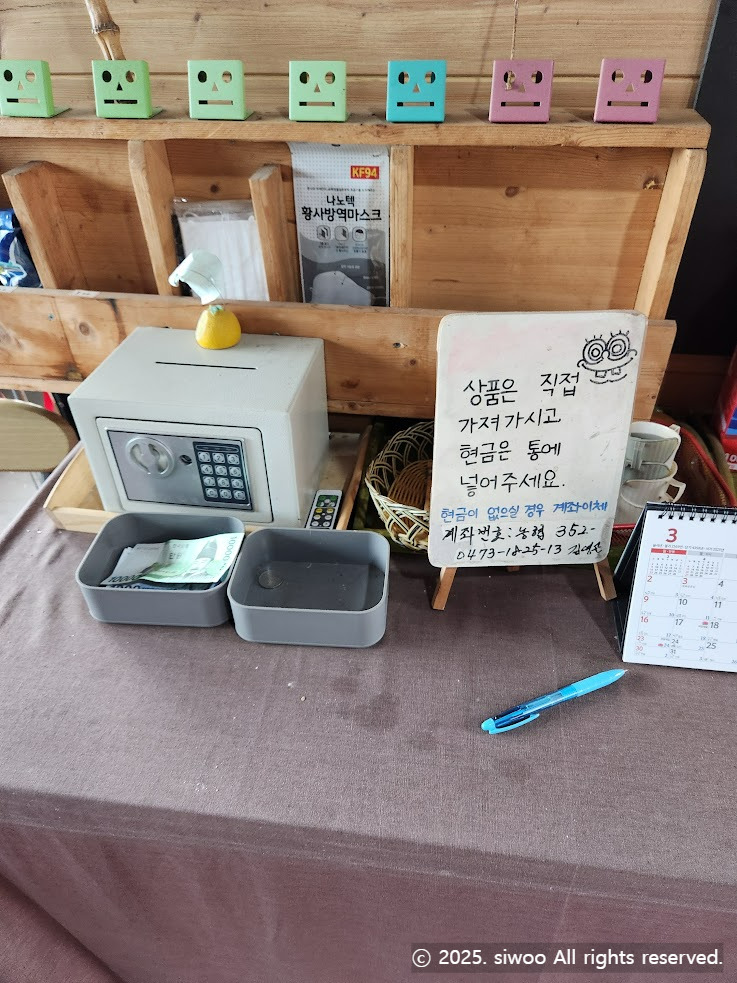 KF94
나노텍
황사방역마스크
상품은 직접
가져가시고
현금은 통에
넣어주세요.
현금이 없으실 경우 계좌이체
계좌번호: 농협 352-
0473-1825-13
10000
3
2 3 4
9 10 11
16 17 18
23 24 25
30 31
© 2025. siwoo All rights reserved.